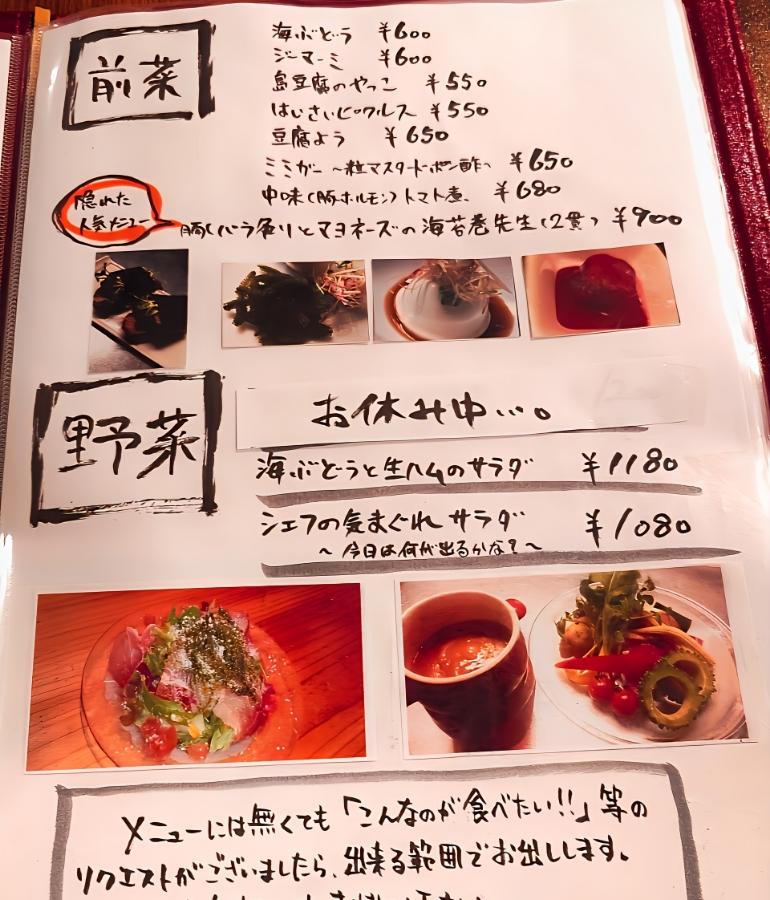 前菜
海ぶどう ¥600
ジーマーミ ¥600
島豆腐のやっこ ¥550
はいさいピクルス ¥550
豆腐よう ¥650
ミミガー ～粒マスタードポン酢～ ¥650
中味(豚ホルモン)トマト煮 ¥680
隠れた
人気メニュー
豚バラ角りとマヨネーズの海苔巻先生(2貫) ¥900
野菜
お休み中…。
海ぶどうと生ハムのサラダ ¥1180
シェフの気まぐれサラダ ¥1080
～今日は何が出るかな?～
メニューには無くても「こんなのが食べたい!!」等の
リクエストがございましたら、出来る範囲でお出しします。